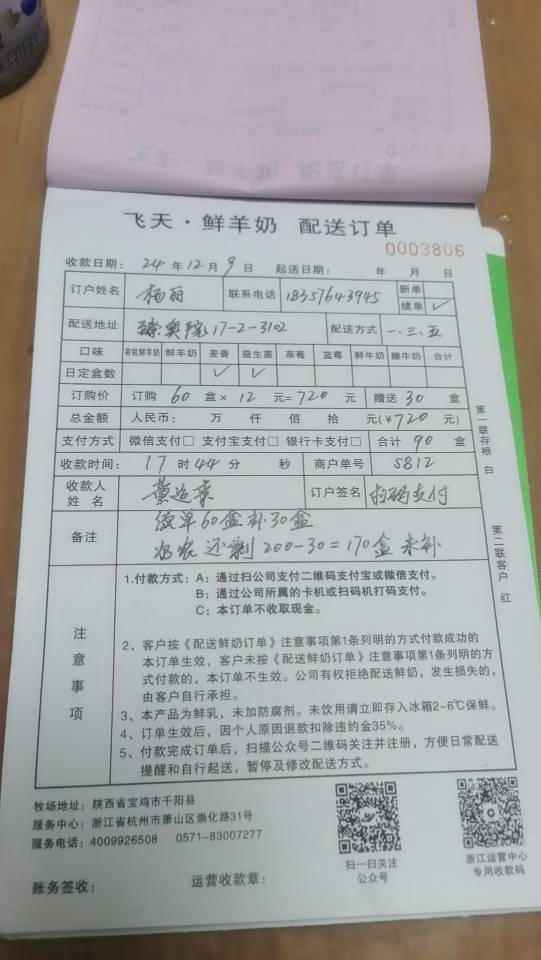 飞天·鲜羊奶 配送订单
0003806
收款日期: 24 年 12 月 9 日 起送日期: 年 月 日
订户姓名 杨丽 联系电话 18357643945 新单
续单 ✓
配送地址 臻奥院17-2-3102 配送方式 一、三、五
口味 有机鲜羊奶 鲜羊奶 麦香 益生菌 草莓 蓝莓 鲜牛奶 酸牛奶 合计
日定盒数 ✓ ✓
订购价 订购 60 盒× 12 元= 720 元 赠送 30 盒
总金额 人民币: 万 仟 佰 拾 元(¥720 元)
支付方式 微信支付□ 支付宝支付□ 银行卡支付□ 合计 90 盒
收款时间: 17 时 44 分 秒 商户单号 5812
收款人姓名 订户签名 扫码支付
备注 单60盒补30盒
还剩200-30=170盒未补
注意事项
1.付款方式: A: 通过扫公司支付二维码支付宝或微信支付。
B: 通过公司所属的卡机或扫码机打码支付。
C: 本订单不收取现金。
2、客户按《配送鲜奶订单》注意事项第1条列明的方式付款成功的
本订单生效，客户未按《配送鲜奶订单》注意事项第1条列明的方
式付款的，本订单不生效。公司有权拒绝配送鲜奶，发生损失的，
由客户自行承担。
3、本产品为鲜乳，未加防腐剂。未饮用请立即存入冰箱2-6℃保鲜。
4、订单生效后，因个人原因退款扣除违约金35%。
5、付款完成订单后，扫描公众号二维码关注并注册，方便日常配送
提醒和自行起送，暂停及修改配送方式。
第一联存根 白
第二联客户 红
牧场地址: 陕西省宝鸡市千阳县
服务中心: 浙江省杭州市萧山区崇化路31号
服务电话: 4009926508 0571-83007277
扫一扫关注
公众号
浙江运营中心
专用收款码
账务签收: 运营收款章: